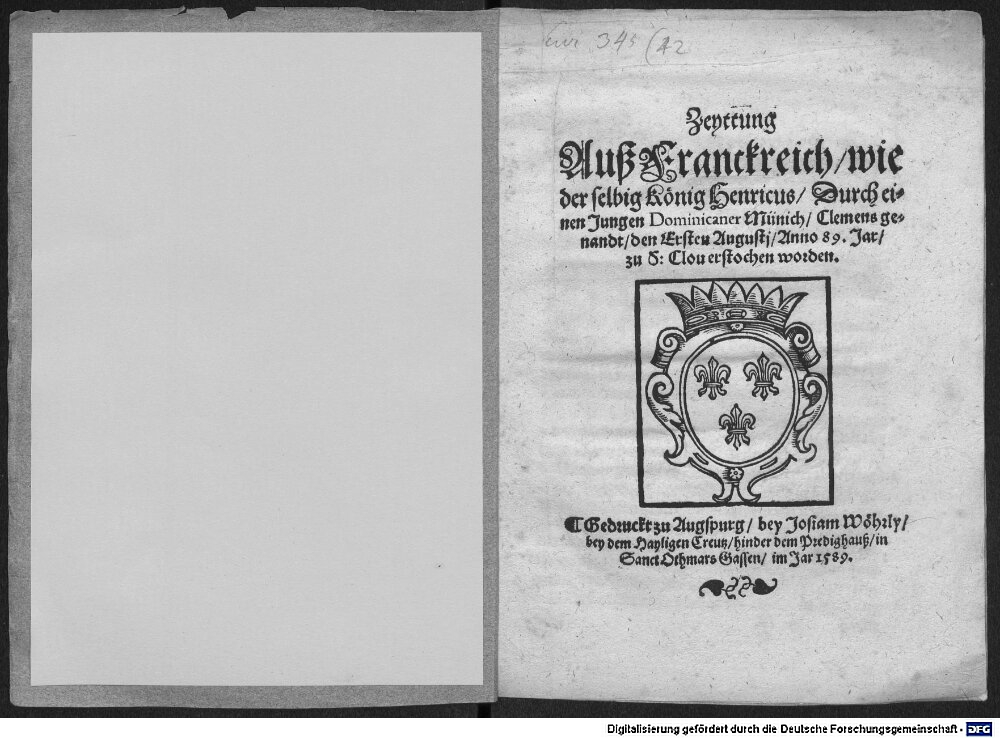 345 (42
Zeyttung
Auß Franckreich/ wie
der selbig König Henricus/ Durch ei-
nen Jungen Dominicaner Münich/ Clemens ge-
nandt/ den Ersten Augustj/ Anno 89. Jar/
zu S: Clou erstochen worden.
Gedruckt zu Augspurg/ bey Josiam Wöhrly/
bey dem Hayligen Creutz/ hinder dem Predighauß/ in
Sanct Othmars Gassen/ im Jar 1589.
Digitalisierung gefördert durch die Deutsche Forschungsgemeinschaft - DFG